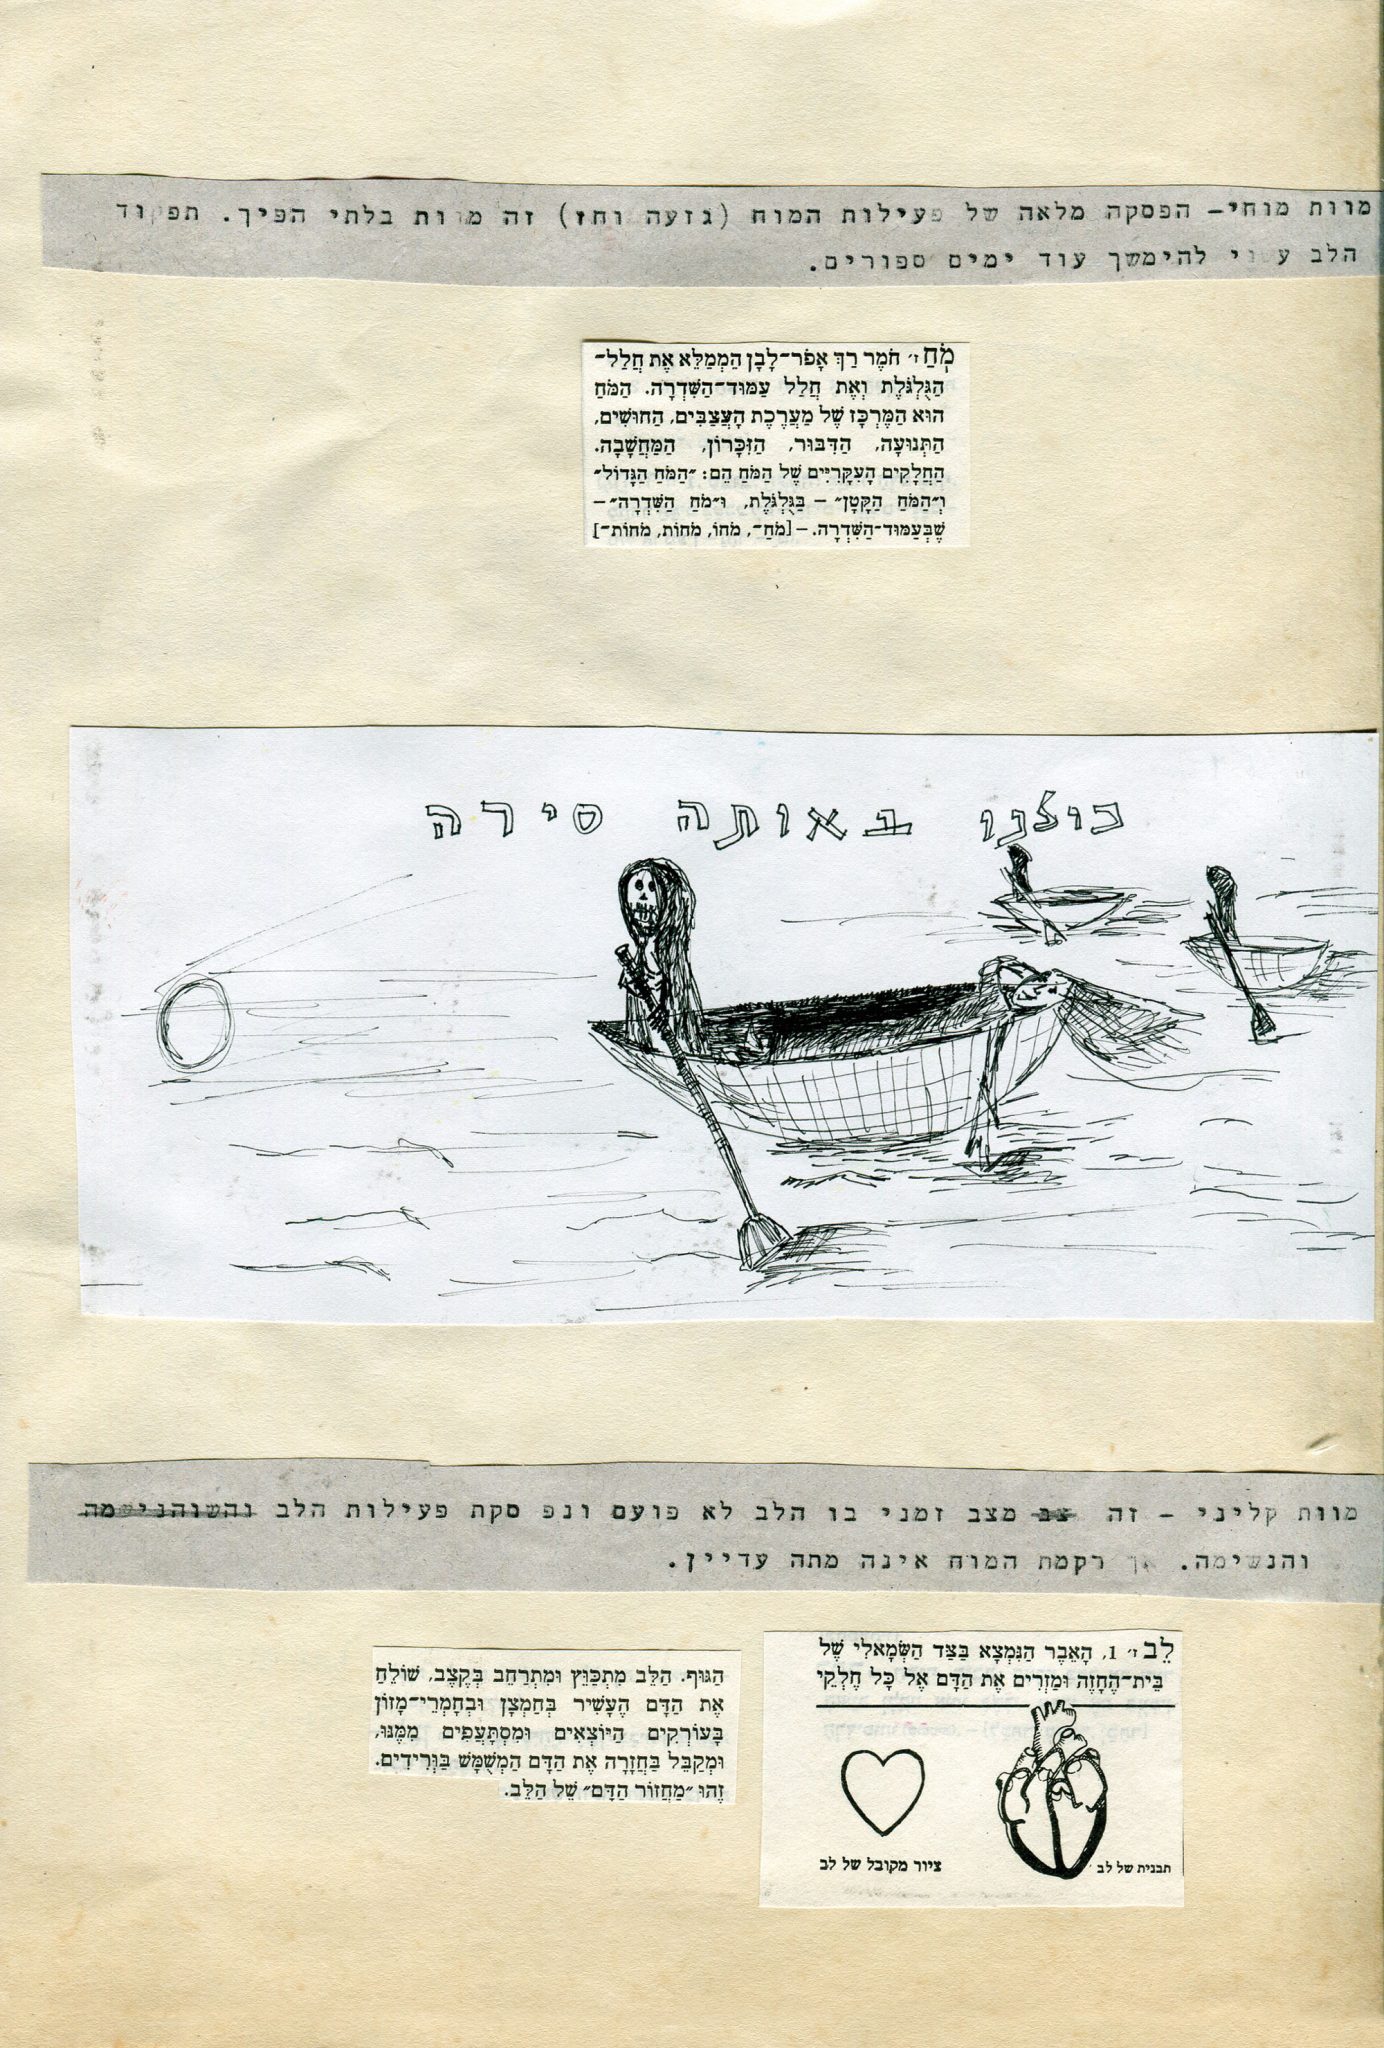 מוות מוחי- הפסקה מלאה של פעילות המוח (גזעה וחז) זה מוות בלתי הפיך. תפקוד
הלב עשוי להימשך עוד ימים ספורים.
מֹחַ ז׳ חֹמֶר רַךְ אָפֹר־לָבָן הַמְמַלֵּא אֶת חֲלַל־
הַגֻּלְגֹּלֶת וְאֶת חֲלַל עַמּוּד־הַשִּׁדְרָה. הַמֹּחַ
הוּא הַמֶּרְכָּז שֶׁל מַעֲרֶכֶת הָעֲצַבִּים, הַחוּשִׁים,
הַתְּנוּעָה, הַדִּבּוּר, הַזִּכָּרוֹן, הַמַּחֲשָׁבָה.
הַחֲלָקִים הָעִקָּרִיִּים שֶׁל הַמֹּחַ הֵם: ״הַמֹּחַ הַגָּדוֹל״
וְ״הַמֹּחַ הַקָּטָן״ – בַּגֻּלְגֹּלֶת, וּ״מֹחַ הַשִּׁדְרָה״ –
שֶׁבְּעַמּוּד־הַשִּׁדְרָה. – [מֹחַ־, מֹחוֹ, מֹחוֹת, מֹחוֹת־]
כולנו באותה סירה
מוות קליני - זה צב מצב זמני בו הלב לא פועם ונפ סקת פעילות הלב
והנשימה. אך רקמת המוח אינה מתה עדיין.
לֵב ז׳ 1. הָאֵבֶר הַנִּמְצָא בַּצַּד הַשְּׂמָאלִי שֶׁל
בֵּית־הֶחָזֶה וּמַזְרִים אֶת הַדָּם אֶל כָּל חֶלְקֵי
תבנית של לב
ציור מקובל של לב
הַגּוּף. הַלֵּב מִתְכַּוֵּץ וּמִתְרַחֵב בְּקֶצֶב, שׁוֹלֵחַ
אֶת הַדָּם הֶעָשִׁיר בְּחַמְצָן וּבְחָמְרֵי־מָזוֹן
בָּעוֹרְקִים הַיּוֹצְאִים וּמִסְתָּעֲפִים מִמֶּנּוּ,
וּמְקַבֵּל בַּחֲזָרָה אֶת הַדָּם הַמְשֻׁמָּשׁ בַּוְּרִידִים.
זֶהוּ ״מַחֲזוֹר הַדָּם״ שֶׁל הַלֵּב.